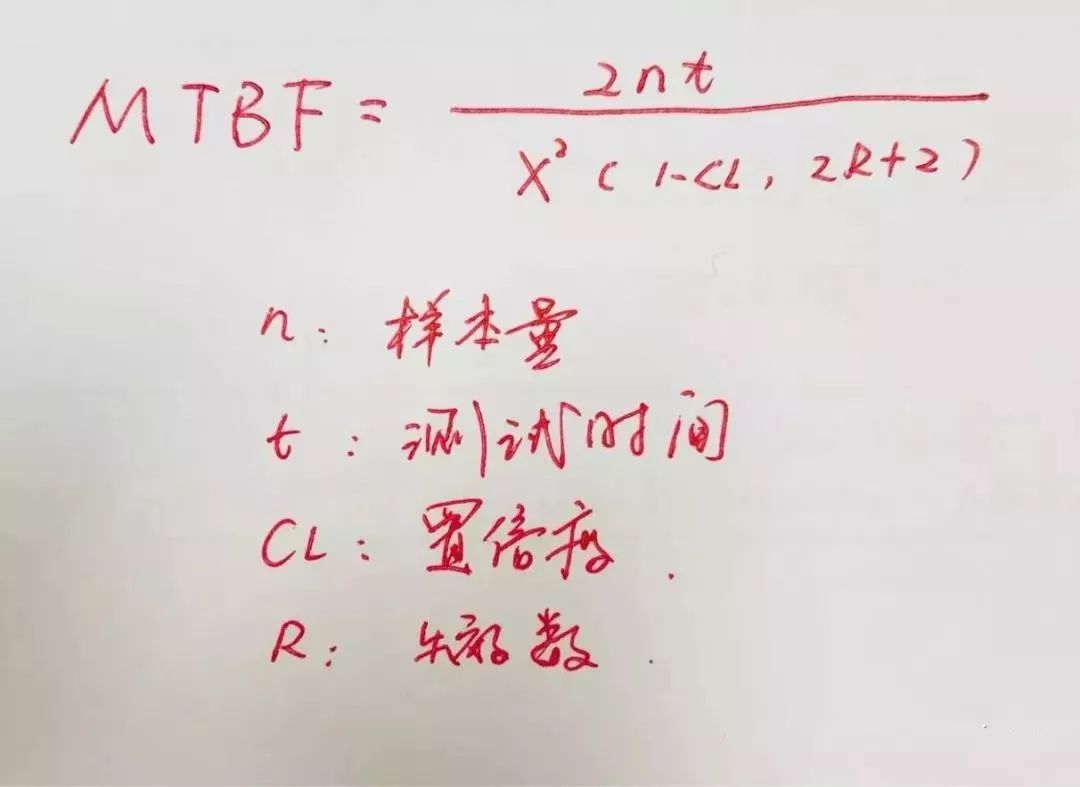 MTBF = 2nt / X²(1-CL, 2R+2)
n: 样本量
t: 测试时间
CL: 置信度.
R: 失效数.